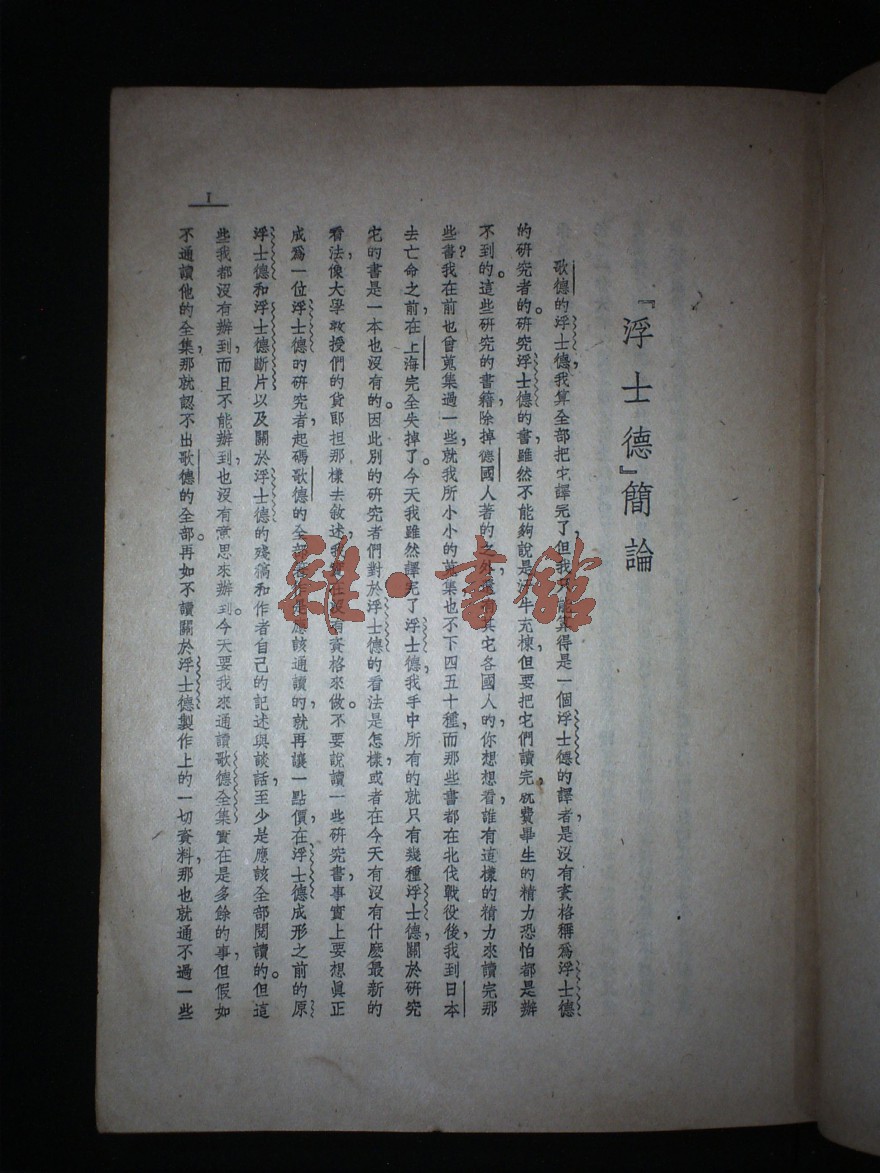 『浮士德』簡論
歌德的浮士德，我算全部把它譯完了，但我只能算得是一個浮士德的譯者，是沒有資格稱爲浮士德
的研究者的。研究浮士德的書，雖然不能夠說是汗牛充棟，但要把它們讀完，旣費畢生的精力恐怕都是辦
不到的。這些研究的書籍，除掉德國人著的之外還有其它各國人的，你想想看，誰有這樣的精力來讀完那
些書？我在前也曾蒐集過一些，就我所小小的蒐集也不下四五十種，而那些書都在北伐戰役後，我到日本
去亡命之前，在上海完全失掉了。今天我雖然譯完了浮士德，我手中所有的就只有幾種浮士德，關於研究
它的書是一本也沒有的。因此別的研究者們對於浮士德的看法是怎樣，或者在今天有沒有什麽最新的
看法，像大學敎授們的貨郎担那樣去敘述，我實在沒有資格來做。不要說讀一些研究書，事實上要想眞正
成爲一位浮士德的研究者，起碼歌德的全部著作是應該通讀的，就再讓一點價，在浮士德成形之前的原
浮士德和浮士德斷片以及關於浮士德的殘稿和作者自己的記述與談話，至少是應該全部閱讀的。但這
些我都沒有辦到，而且不能辦到，也沒有意思來辦到。今天要我來通讀歌德全集實在是多餘的事，但假如
不通讀他的全集，那就認不出歌德的全部。再如不讀關於浮士德製作上的一切資料，那也就通不過一些
I
雜·書舘